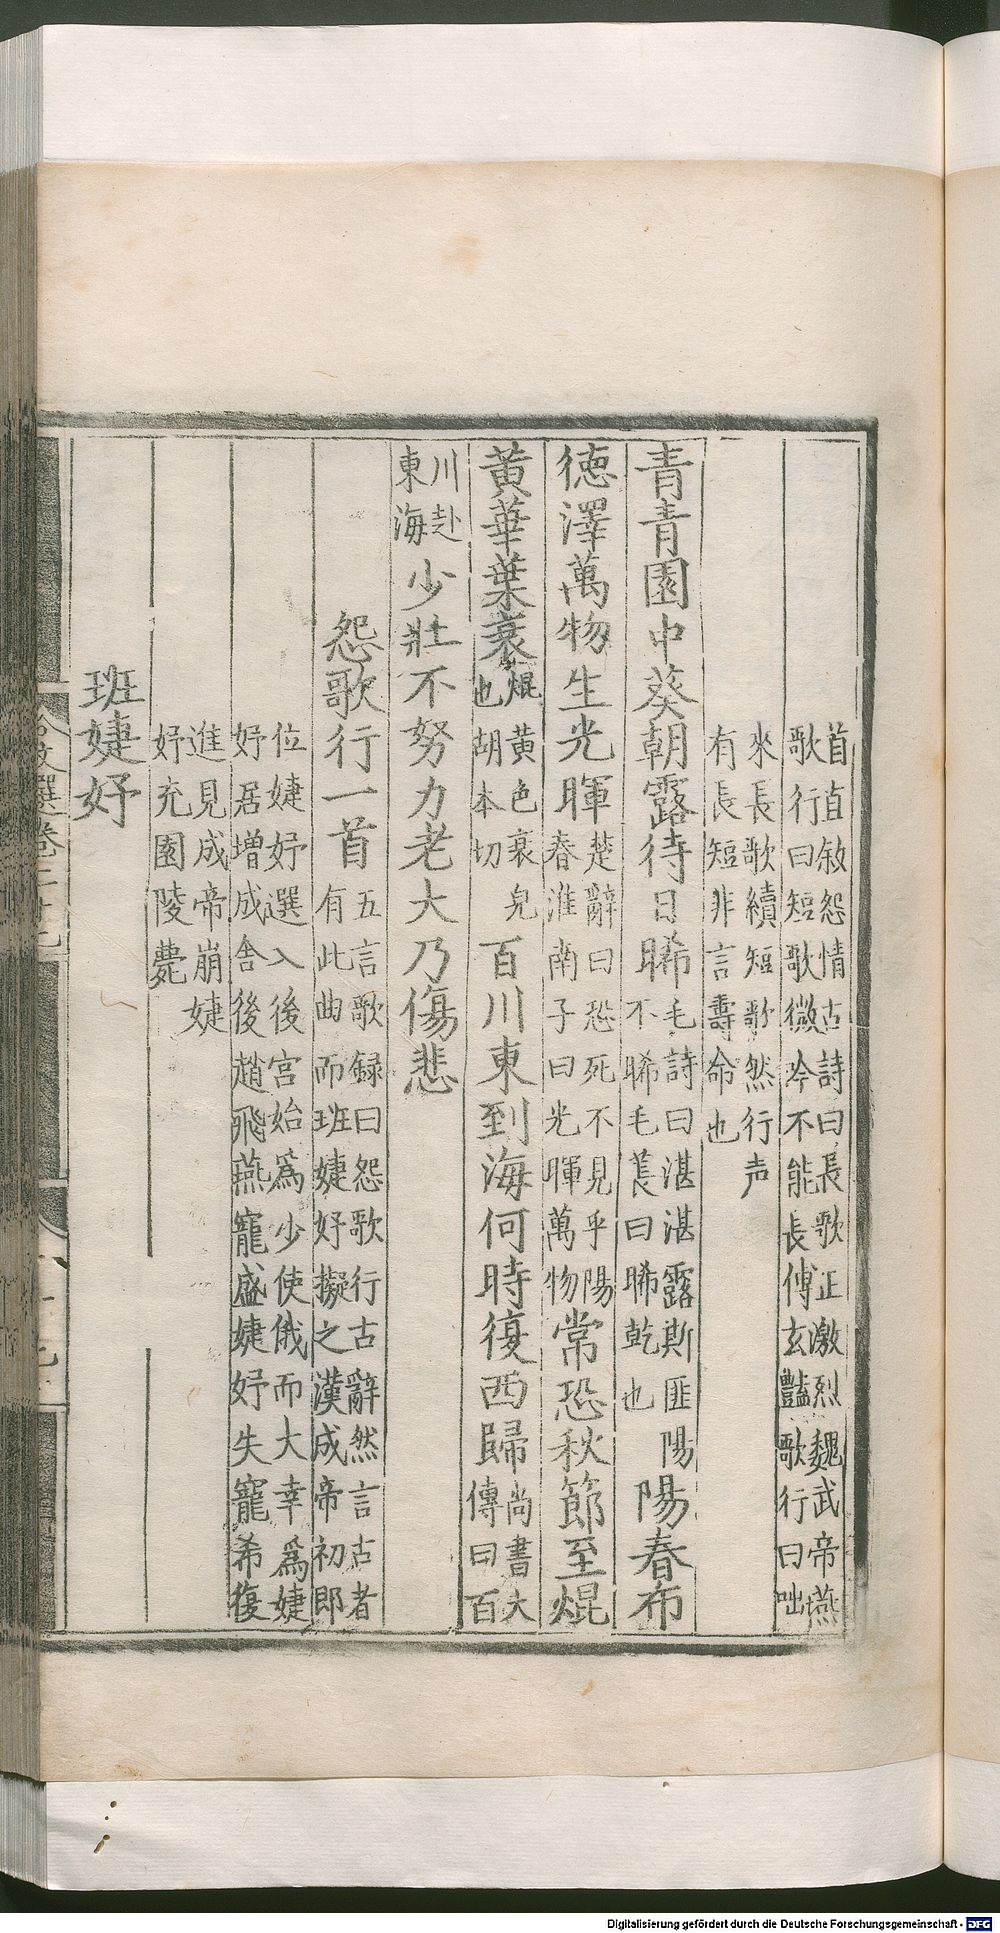 首直敘怨情古詩曰長歌正激烈魏武帝燕
歌行曰短歌微吟不能長傅玄豔歌行曰咄
來長歌續短歌然行声
有長短非言壽命也
青青園中葵朝露待日晞毛詩曰湛湛露斯匪陽不晞毛萇曰晞乾也陽春布
德澤萬物生光暉楚辭曰恐死不見乎陽春淮南子曰光暉萬物常恐秋節至焜
黄華葉衰焜黄色衰皃也胡本切百川東到海何時復西歸尚書大傳曰百
川赴東海少壯不努力老大乃傷悲
怨歌行一首五言歌録曰怨歌行古辭然言古者有此曲而班婕妤擬之漢成帝初即
位婕妤選入後宮始爲少使俄而大幸爲婕
妤居增成舍後趙飛燕寵盛婕妤失寵希復
進見成帝崩婕
妤充園陵薨
班婕妤
Digitalisierung gefördert durch die Deutsche Forschungsgemeinschaft - DFG